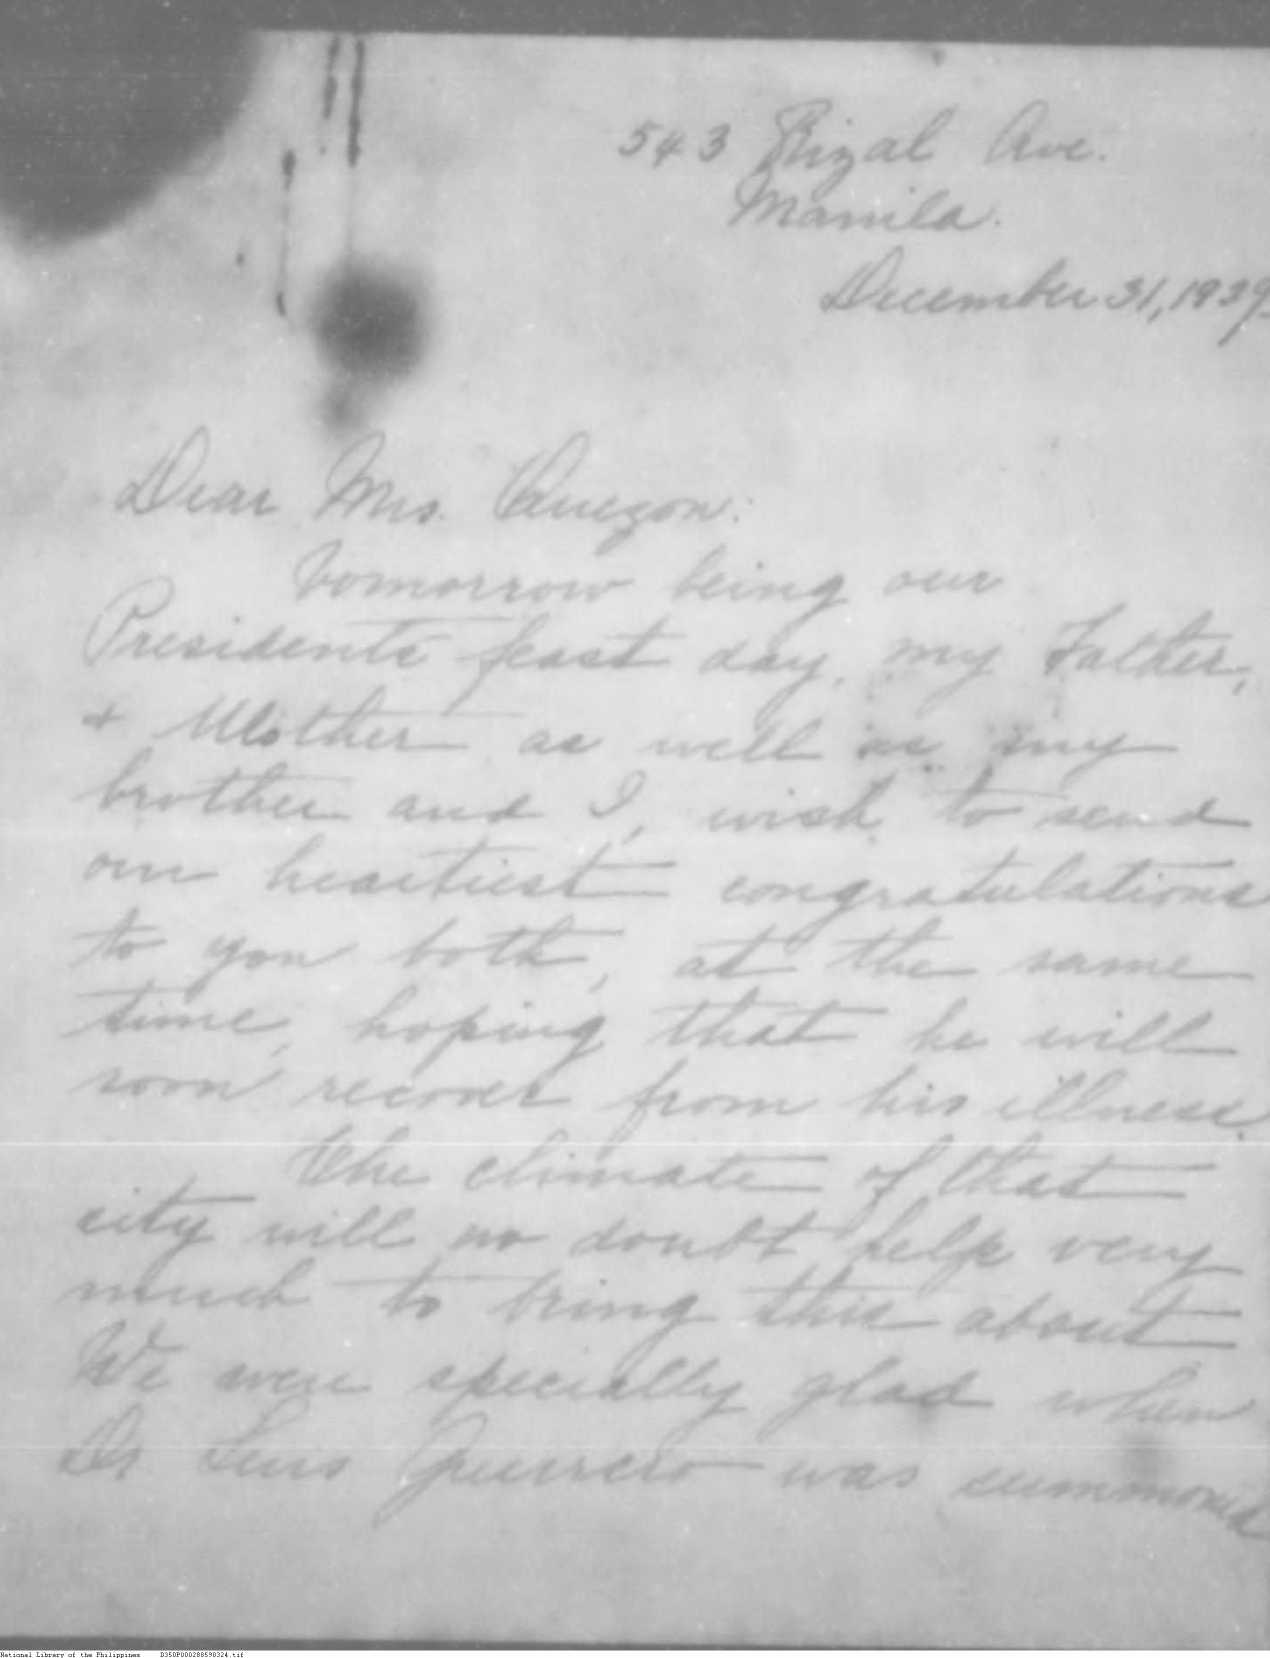 543 Rizal Ave.
Manila.
December 31, 1939
Dear Mrs. Quezon:
Tomorrow being our
Presidents feast day, my Father,
+ Mother as well as my
brother and I, wish to send
our heartiest congratulations
to you both, at the same
time, hoping that he will
soon recover from his illness.
The climate of that
city will no doubt help very
much to bring this about
We were specially glad when
Dr Luis Guerrero was summoned
National Library of the Philippines D350P000288598324.tif